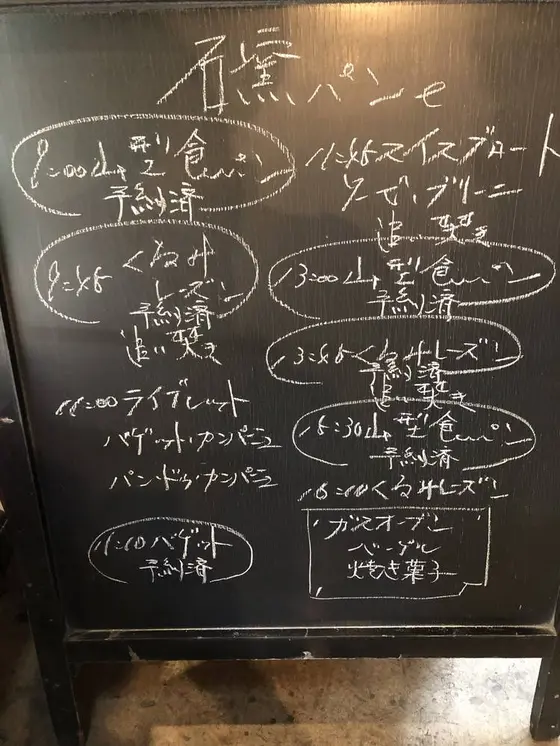 石窯パン
9:00山型食パン
予約済
9:45くるみ
レーズン
予約済
追い焚き
11:00ライブレット
バゲット・カンパーニュ
パン・ドゥ・カンパーニュ
11:10バゲット
予約済
11:45スイスブロート
追い焚き
13:00山型食パン
予約済
13:45くるみレーズン
予約済
追い焚き
15:30山型食パン
予約済
16:10くるみレーズン
ガスオーブン
ベーグル
焼き菓子